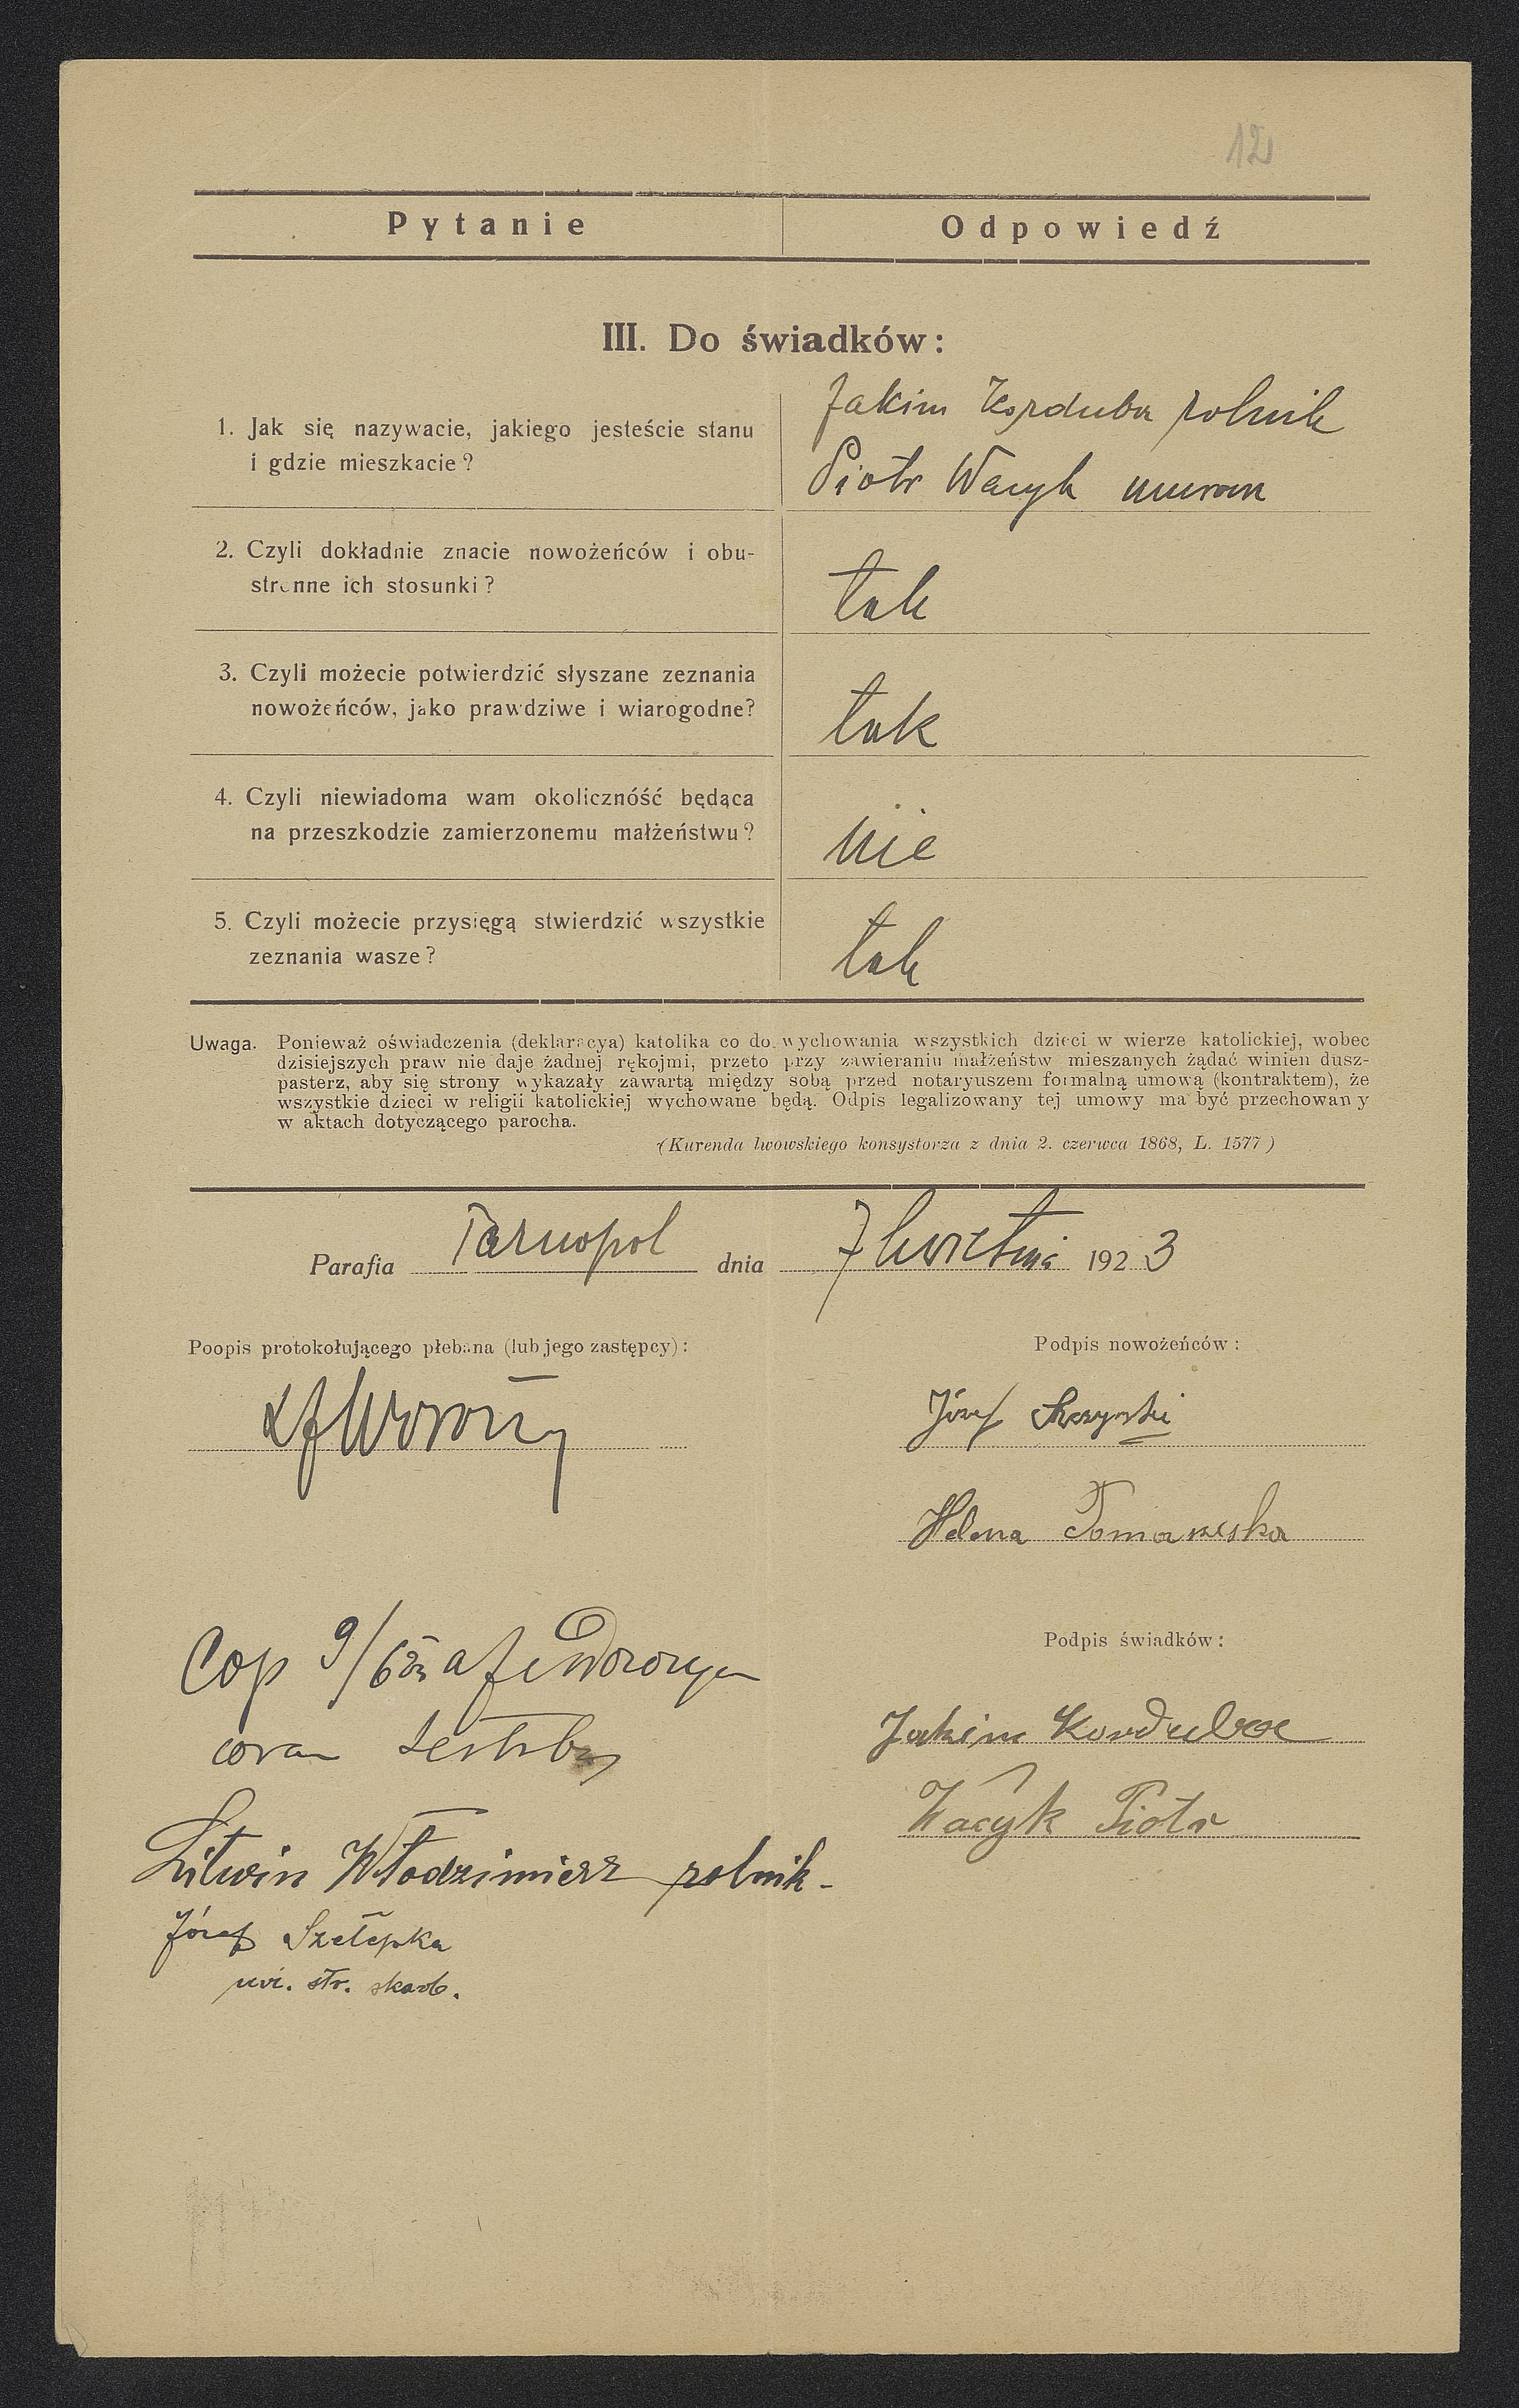 12
Pytanie Odpowiedź
III. Do świadków:
1. Jak się nazywacie, jakiego jesteście stanu
i gdzie mieszkacie?
Jakim Korduba rolnik
Piotr Wacyk muran
2. Czyli dokładnie znacie nowożeńców i obu-
stronne ich stosunki?
tak
3. Czyli możecie potwierdzić słyszane zeznania
nowożeńców, jako prawdziwe i wiarogodne?
tak
4. Czyli niewiadoma wam okolicznóść będąca
na przeszkodzie zamierzonemu małżeństwu?
nie
5. Czyli możecie przysięgą stwierdzić wszystkie
zeznania wasze?
tak
Uwaga. Ponieważ oświadczenia (deklaracya) katolika co do wychowania wszystkich dzieci w wierze katolickiej, wobec
dzisiejszych praw nie daje żadnej rękojmi, przeto przy zawieraniu małżeństw mieszanych żądać winien dusz-
pasterz, aby się strony wykazały zawartą między sobą przed notaryuszem formalną umową (kontraktem), że
wszystkie dzieci w religii katolickiej wychowane będą. Odpis legalizowany tej umowy ma być przechowany
w aktach dotyczącego parocha.
(Kurenda lwowskiego konsystorza z dnia 2. czerwca 1868, L. 1577)
Parafia Tarnopol dnia 7 kwietnia 1923
Poopis protokołującego plebana (lub jego zastępcy):
Podpis nowożeńców:
Józef
Helena
Cop 9/6 23 a
coram testibus
Podpis świadków:
Jakim Korduba
Wacyk Piotr
Litwin Włodzimierz rolnik-
Józef Szełepka
str. skarb.